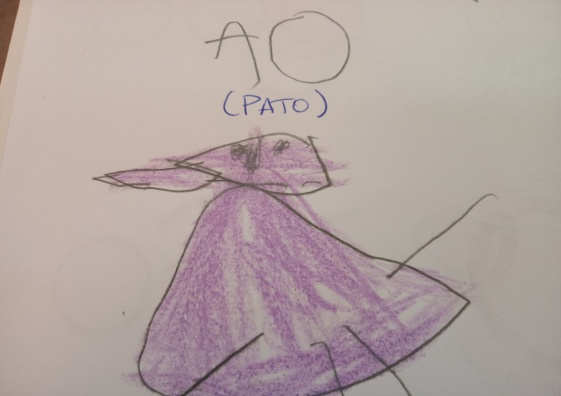 AO
(PATO)